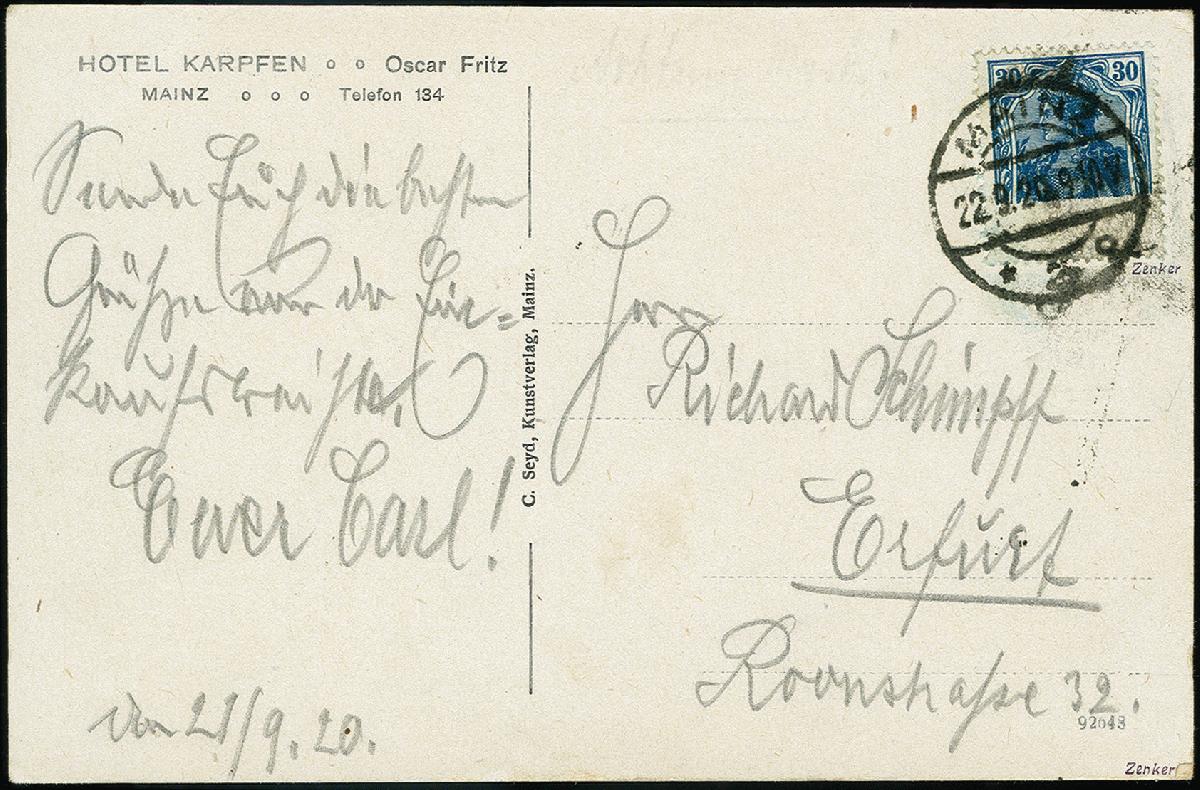 HOTEL KARPFEN o o Oscar Fritz
MAINZ o o o Telefon 134
Sende Euch die besten
Grüße von der Ein=
kaufsreise,
Euer Carl!
den 21/9.20.
C. Seyd, Kunstverlag, Mainz.
30 30
MAINZ
22.9.20.9-10V
* 2
Zenker
Herrn
Richard Schimpff
Erfurt
Roonstraße 32.
92043
Zenker